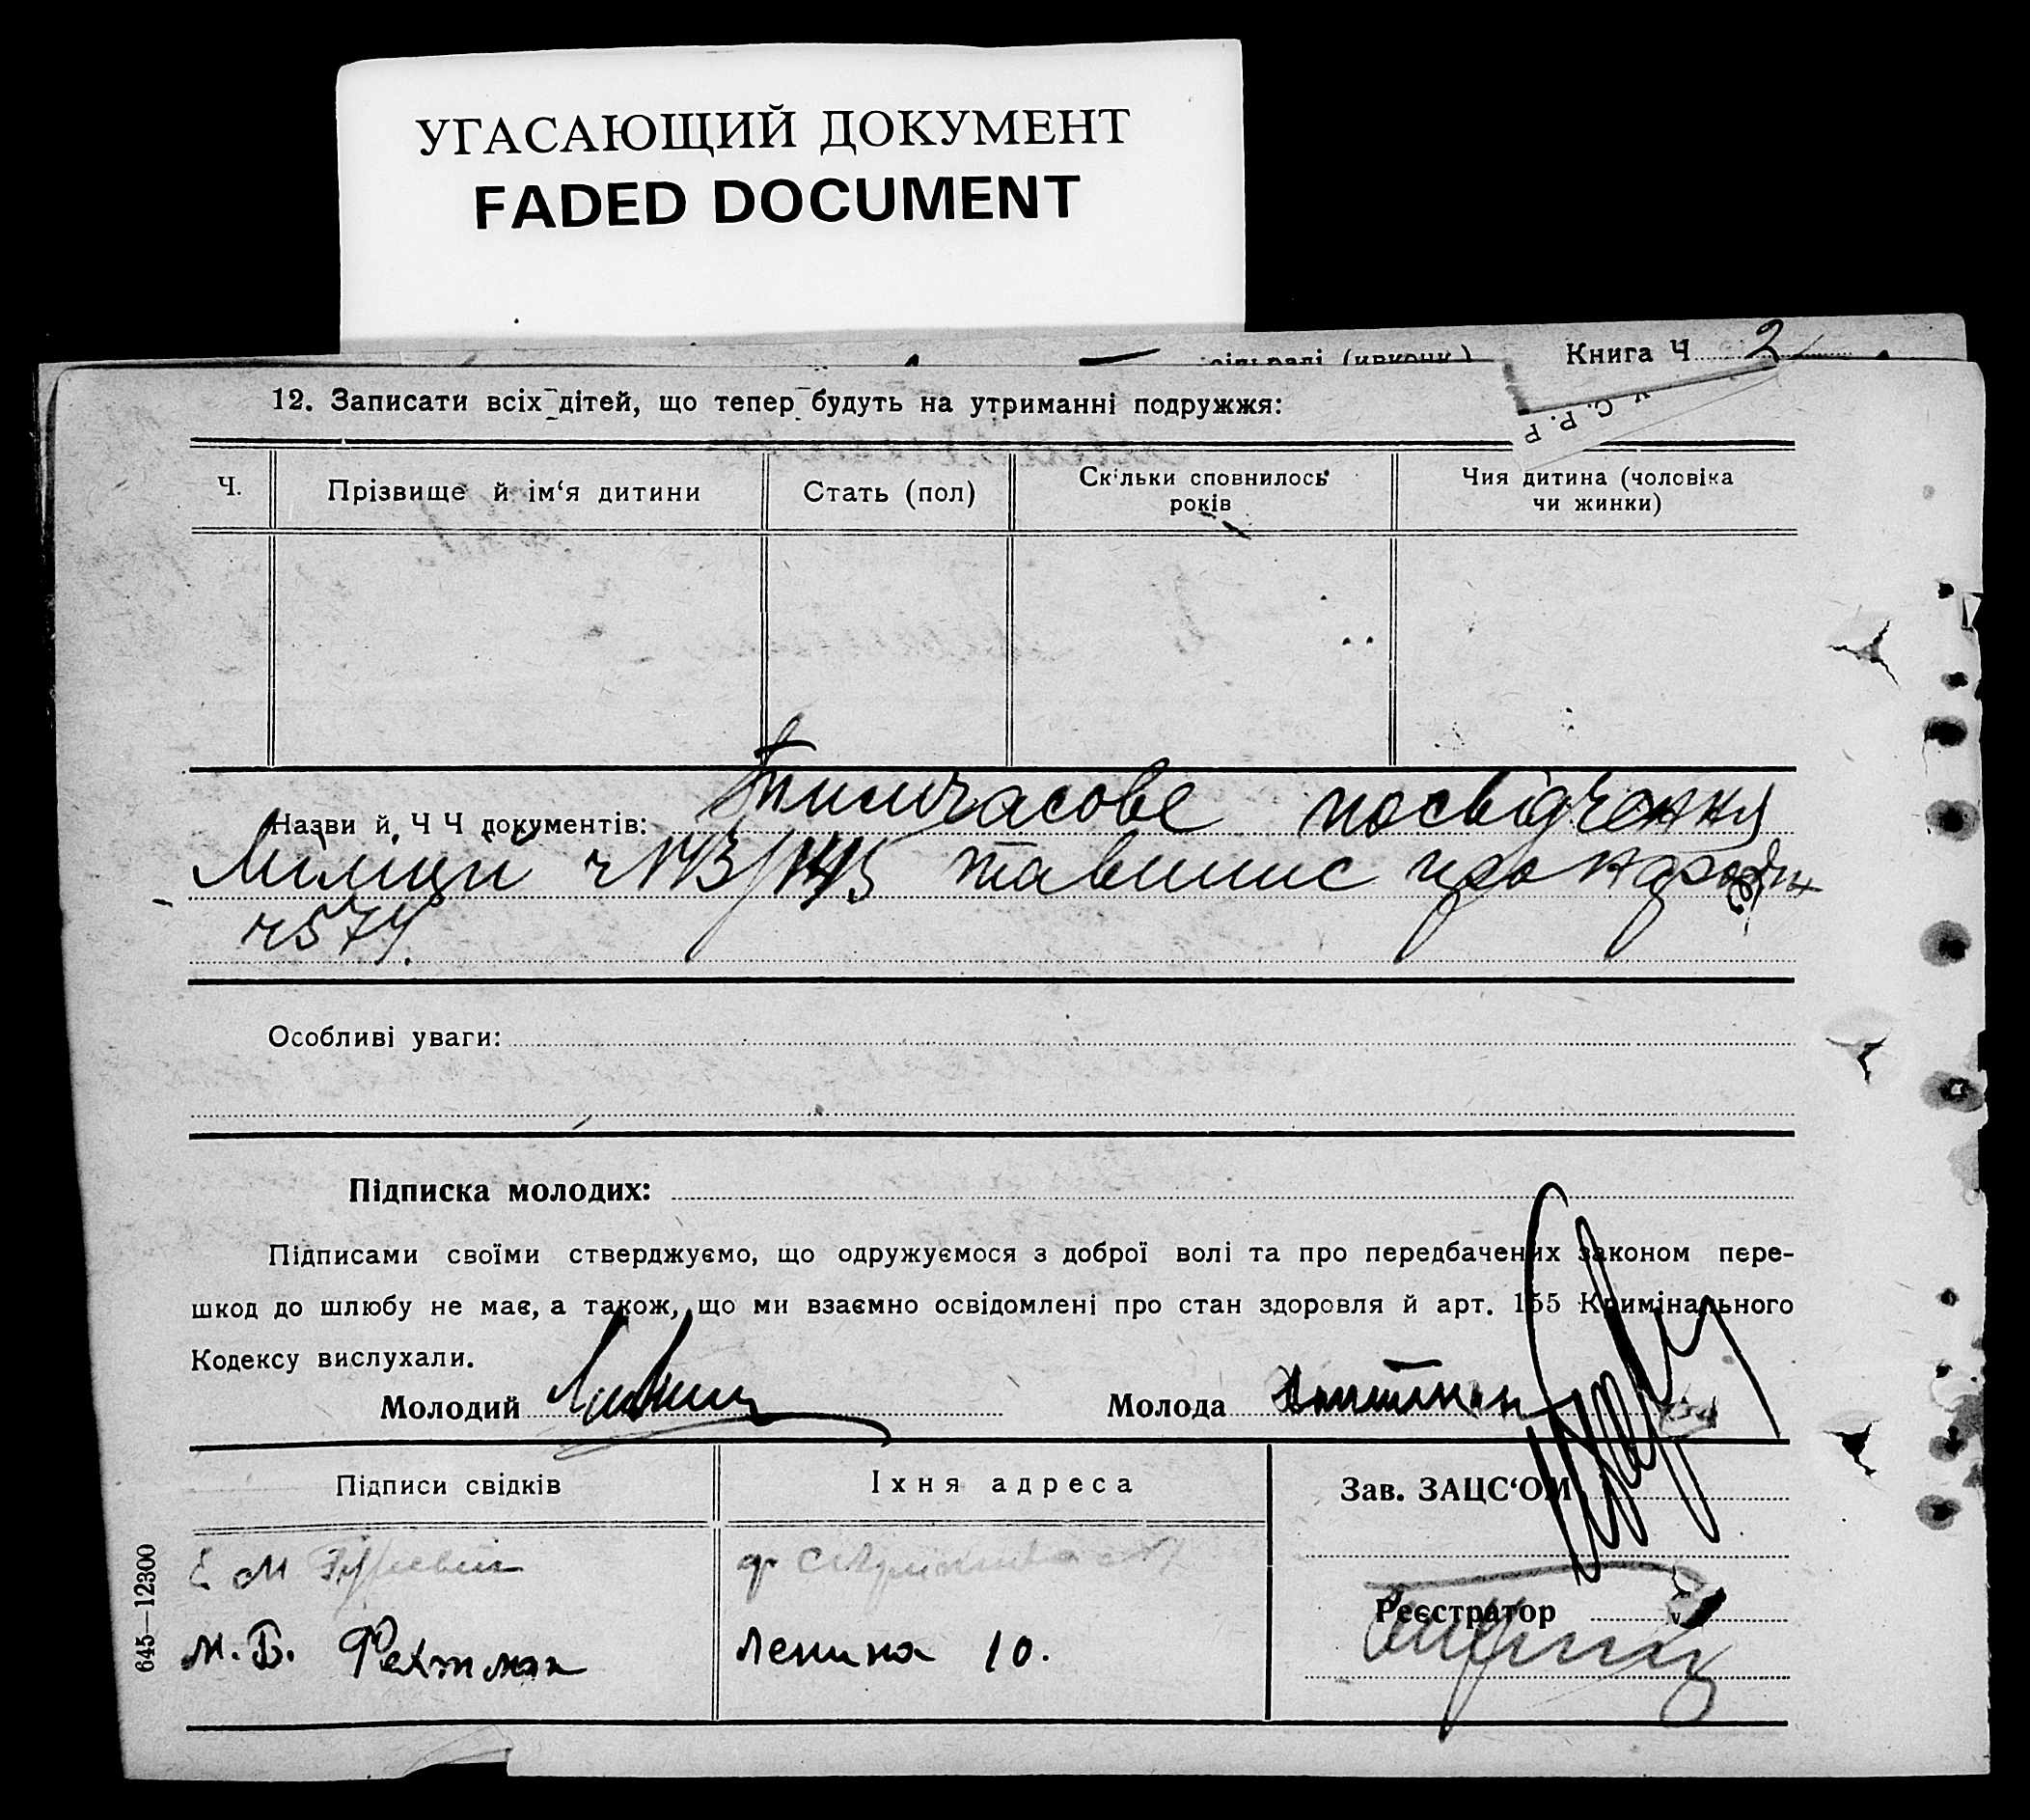 УГАСАЮЩИЙ ДОКУМЕНТ
FADED DOCUMENT
Книга Ч 2
У. С. Р. Р
12. Записати всіх дітей, що тепер будуть на утриманні подружжя:
Ч.
Прізвище й ім‘я дитини
Стать (пол)
Скільки сповнилось
років
Чия дитина (чоловіка
чи жинки)
Назви й Ч Ч документів: Тимчасове посвідчення
Міліції та випис про народж
ч 574.
Особливі уваги:
Підписка молодих:
Підписами своїми стверджуємо, що одружуємося з доброї волі та про передбачених законом пере-
шкод до шлюбу не має, а також, що ми взаємно освідомлені про стан здоровля й арт. 155 Кримінального
Кодексу вислухали.
Молодий
Молода
Підписи свідків
Їхня адреса
Зав. ЗАЦС‘ОМ
Е М
М. Б. Фехтман
Ленина 10.
Реєстратор
645—12300